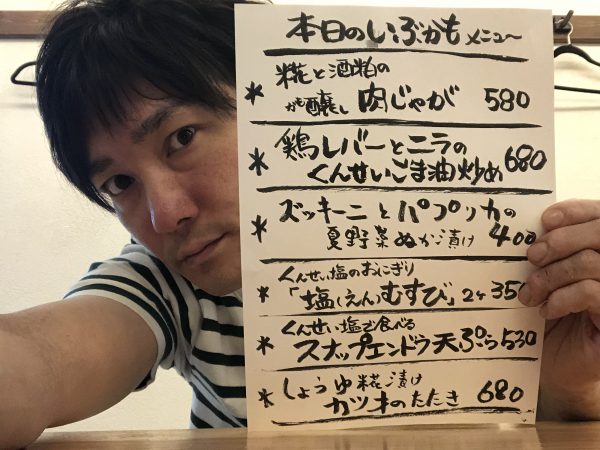 本日のいぶかもメニュー
* 糀と酒粕の
かも醸し 肉じゃが 580
* 鶏レバーとニラの
くんせいごま油炒め 680
* ズッキーニとパプリカの
夏野菜ぬか漬け 400
くんせい塩のおにぎり
* 「塩(えん)むすび」2ケ 350
くんせい塩で食べる
* スナップエンドウ天ぷら 530
* しょうゆ糀漬け
カツオのたたき 680